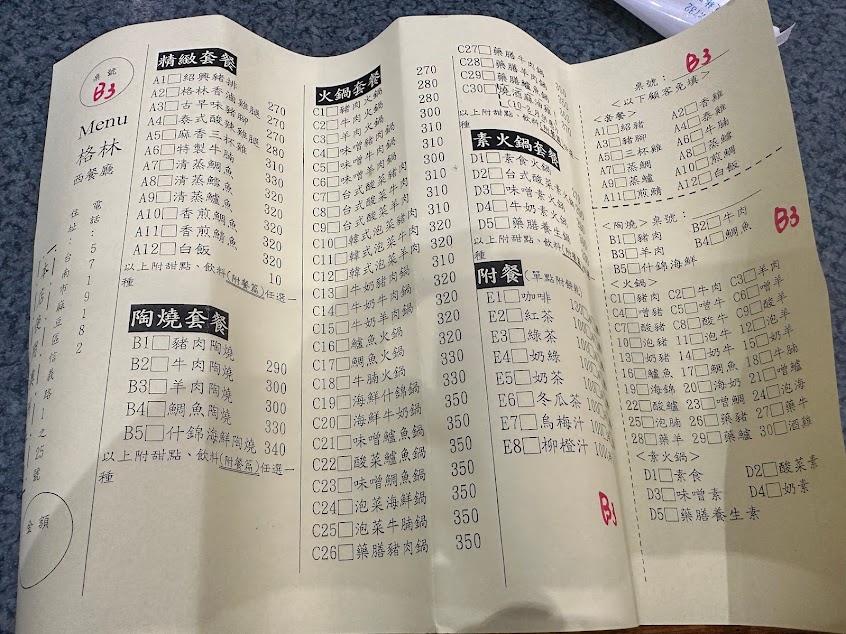 桌號
B3
Menu
格林
西餐廳
電話:5719182
住址:台南市麻豆區信義路1之25號
金額
精緻套餐
A1□紹興豬排
A2□格林香滷雞腿 270
A3□古早味豬腳 280
A4□泰式酸辣雞腿 270
A5□麻香三杯雞 280
A6□特製牛腩 310
A7□清蒸鯛魚 330
A8□清蒸鱈魚 320
A9□清蒸鱸魚 320
A10□香煎鯛魚 320
A11□香煎鯖魚 320
A12□白飯 10
以上附甜點、飲料(附餐區)任選一種
陶燒套餐
B1□豬肉陶燒 290
B2□牛肉陶燒 300
B3□羊肉陶燒 300
B4□鯛魚陶燒 330
B5□什錦海鮮陶燒 340
以上附甜點、飲料(附餐區)任選一種
火鍋套餐
C1□豬肉火鍋 270
C2□牛肉火鍋 280
C3□羊肉火鍋 280
C4□味噌豬肉鍋
C5□味噌牛肉鍋
C6□味噌羊肉鍋
C7□台式酸菜豬肉
C8□台式酸菜牛肉
C9□台式酸菜羊肉
C10□韓式泡菜豬肉
C11□韓式泡菜牛肉
C12□韓式泡菜羊肉
C13□牛奶豬肉鍋
C14□牛奶牛肉鍋
C15□牛奶羊肉鍋
C16□鱸魚火鍋
C17□鯛魚火鍋
C18□牛腩火鍋
C19□海鮮什錦鍋
C20□海鮮牛奶鍋
C21□味噌鱸魚鍋
C22□酸菜鱸魚鍋
C23□味噌鯛魚鍋 350
C24□泡菜海鮮鍋 350
C25□泡菜牛腩鍋 350
C26□藥膳豬肉鍋 350
C27□藥膳牛肉鍋
C28□藥膳羊肉鍋
C29□藥膳鱸魚鍋
C30□燒酒雞
以上附甜點、飲料
種
素火鍋套餐
D1□素食火鍋
D2□台式酸菜素火鍋
D3□味噌素火鍋
D4□牛奶素火鍋
D5□藥膳養生鍋
以上附甜點、飲料
種
附餐(單點附餅乾)
E1□咖啡
E2□紅茶
E3□綠茶
E4□奶綠
E5□奶茶
E6□冬瓜茶
E7□烏梅汁
E8□柳橙汁
B3
桌號: B3
<以下顧客免填>
<套餐>
A1□紹豬 A2□香雞
A3□豬腳 A4□泰雞
A5□三杯雞 A6□牛腩
A7□蒸鯛 A8□蒸鱈
A9□蒸鱸 A10□煎鯛
A11□煎鯖 A12□白飯
<陶燒>桌號: B3
B1□豬肉 B2□牛肉
B3□羊肉 B4□鯛魚
B5□什錦海鮮
<火鍋>
C1□豬肉 C2□牛肉 C3□羊肉
C4□噌豬 C5□噌牛 C6□噌羊
C7□酸豬 C8□酸牛 C9□酸羊
10□泡豬 11□泡牛 12□泡羊
13□奶豬 14□奶牛 15□奶羊
16□鱸魚 17□鯛魚 18□牛腩
19□海錦 20□海奶 21□噌鱸
22□酸鱸 23□噌鯛 24□泡海
25□泡腩 26□藥豬 27□藥牛
28□藥羊 29□藥鱸 30□酒雞
<素火鍋>
D1□素食 D2□酸菜素
D3□味噌素 D4□奶素
D5□藥膳養生素